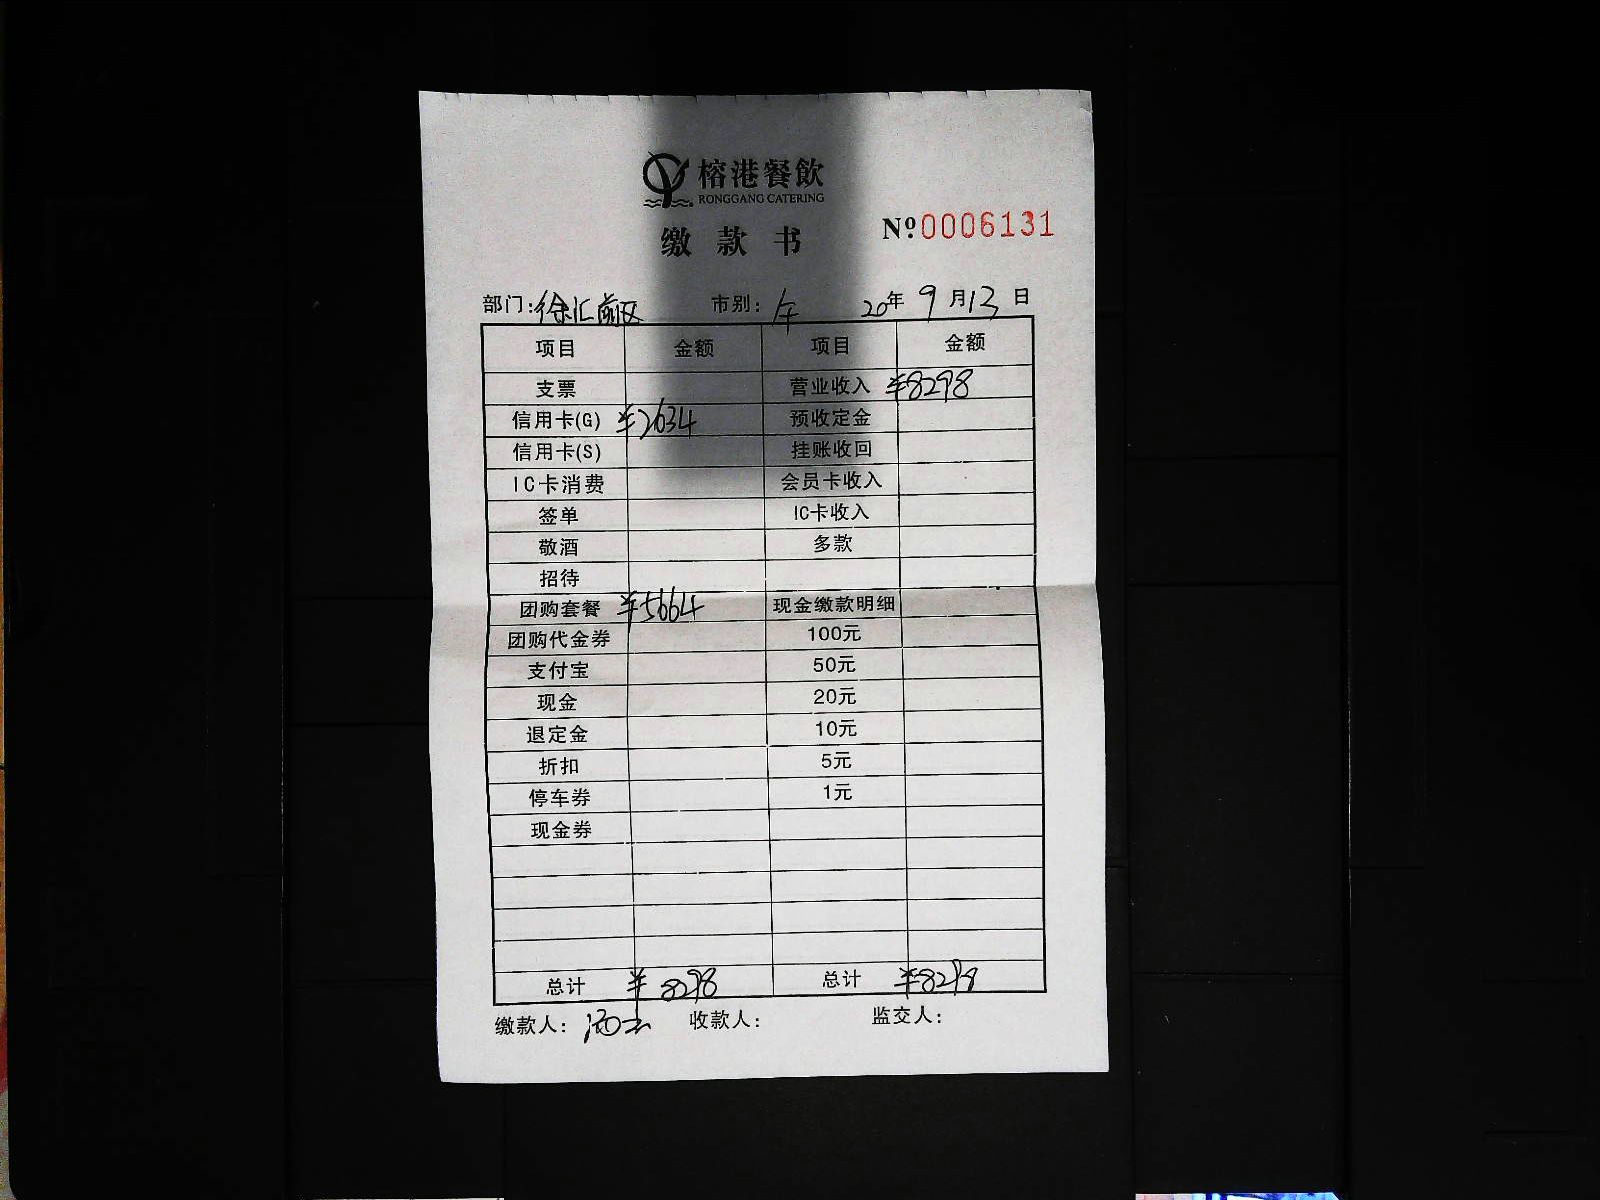 榕港餐飲
RONGGANG CATERING
缴款书
№0006131
部门:徐汇前区 市别:午 20年9月13日
项目 金额 项目 金额
支票 营业收入 ¥8298
信用卡(G) ¥2634 预收定金
信用卡(S) 挂账收回
IC卡消费 会员卡收入
签单 IC卡收入
敬酒 多款
招待
团购套餐 ¥5664 现金缴款明细
团购代金券 100元
支付宝 50元
现金 20元
退定金 10元
折扣 5元
停车券 1元
现金券
总计 ¥8298 总计 ¥8298
缴款人: 收款人: 监交人: